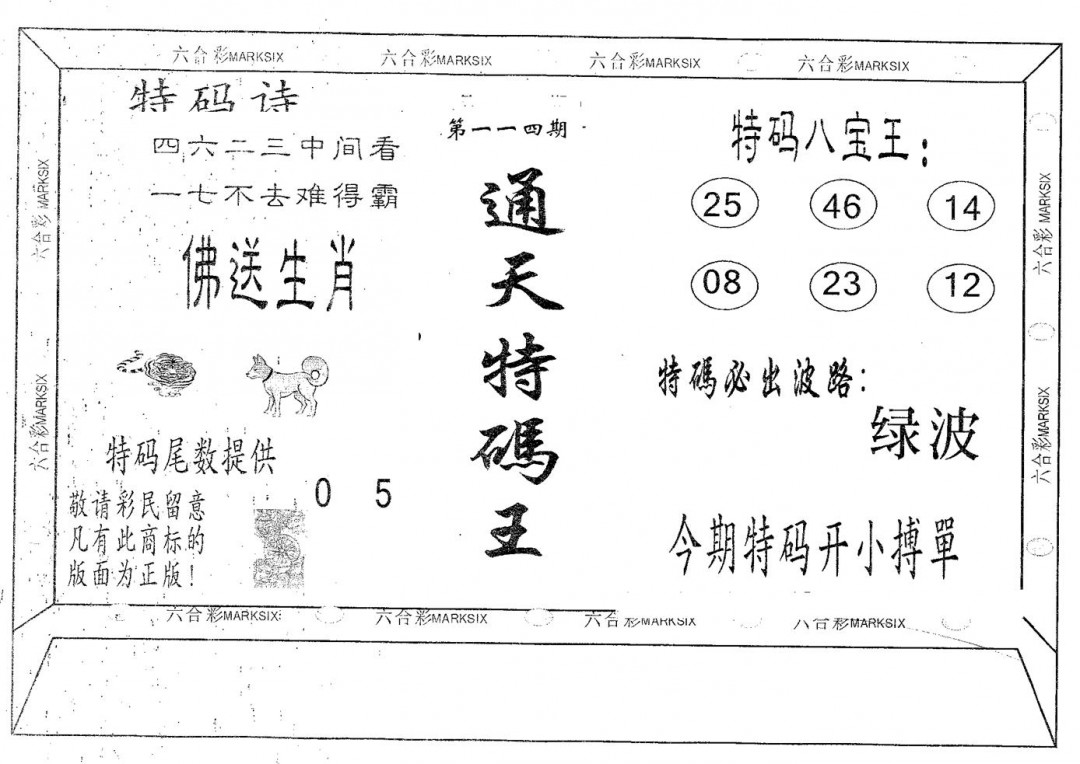 六合彩MARKSIX 六合彩MARKSIX 六合彩MARKSIX 六合彩MARKSIX
特码诗
四六二三中间看
一七不去难得霸
佛送生肖
特码尾数提供
0 5
敬请彩民留意
凡有此商标的
版面为正版!
第一一四期
通天特碼王
特码八宝王:
25 46 14
08 23 12
特碼必出波路:
绿波
今期特码开小搏單
六合彩MARKSIX
六合彩MARKSIX
六合彩MARKSIX
六合彩MARKSIX
六合彩MARKSIX 六合彩MARKSIX 六合彩MARKSIX 六合彩MARKSIX